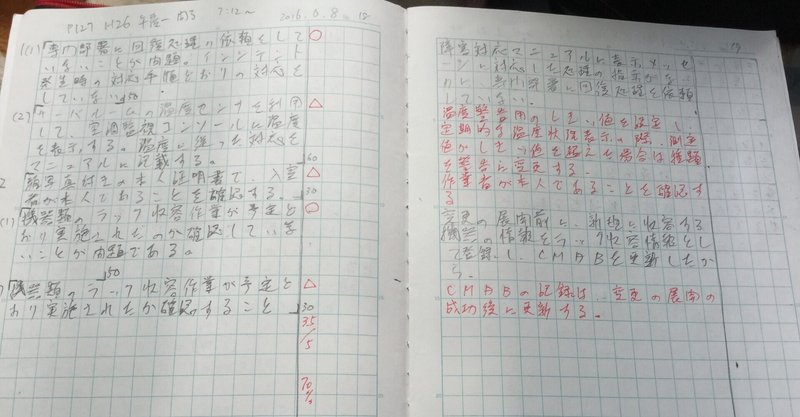 P127 H26 午後一 問3 7:12~ 2016.6.8
1(1) 専門部署に回復処理の依頼をして
いないことが問題。インシデント
発生時の対応手順どおりの対応を
していない 50
(2) サーバルームの温度センサを利用
して、室調監視コンソールに温度
を表示する。温度に従った対応を
マニュアルに記載する。 60
2 顔写真付きの本人証明書で、入室
者が本人であることを確認する。 30
(1) 機器類のラック収容作業が予定ど
おり実施されたのか確認していな
いことが問題である。
50
機器類のラック収容作業が予定ど
おり実施されたか確認すること 30
○
△
△
○
△
35
/5
70
障害対応マニュアルに表示メッセ
に対応した処理の指示がな
いと専門部署に回復処理を依頼
していない。
温度警告用のしきい値を設定し
定期的な温度状況表示の際、測定
値がしきい値を超えた場合は種類
を警告に変更する
作業者が本人であることを確認す
る
変更の展開前に、新規に収容する
機器の情報をラック収容情報とし
て登録し、CMDBを更新したか
ら。
CMDBの記録は、変更の展開の
成功後に更新する。